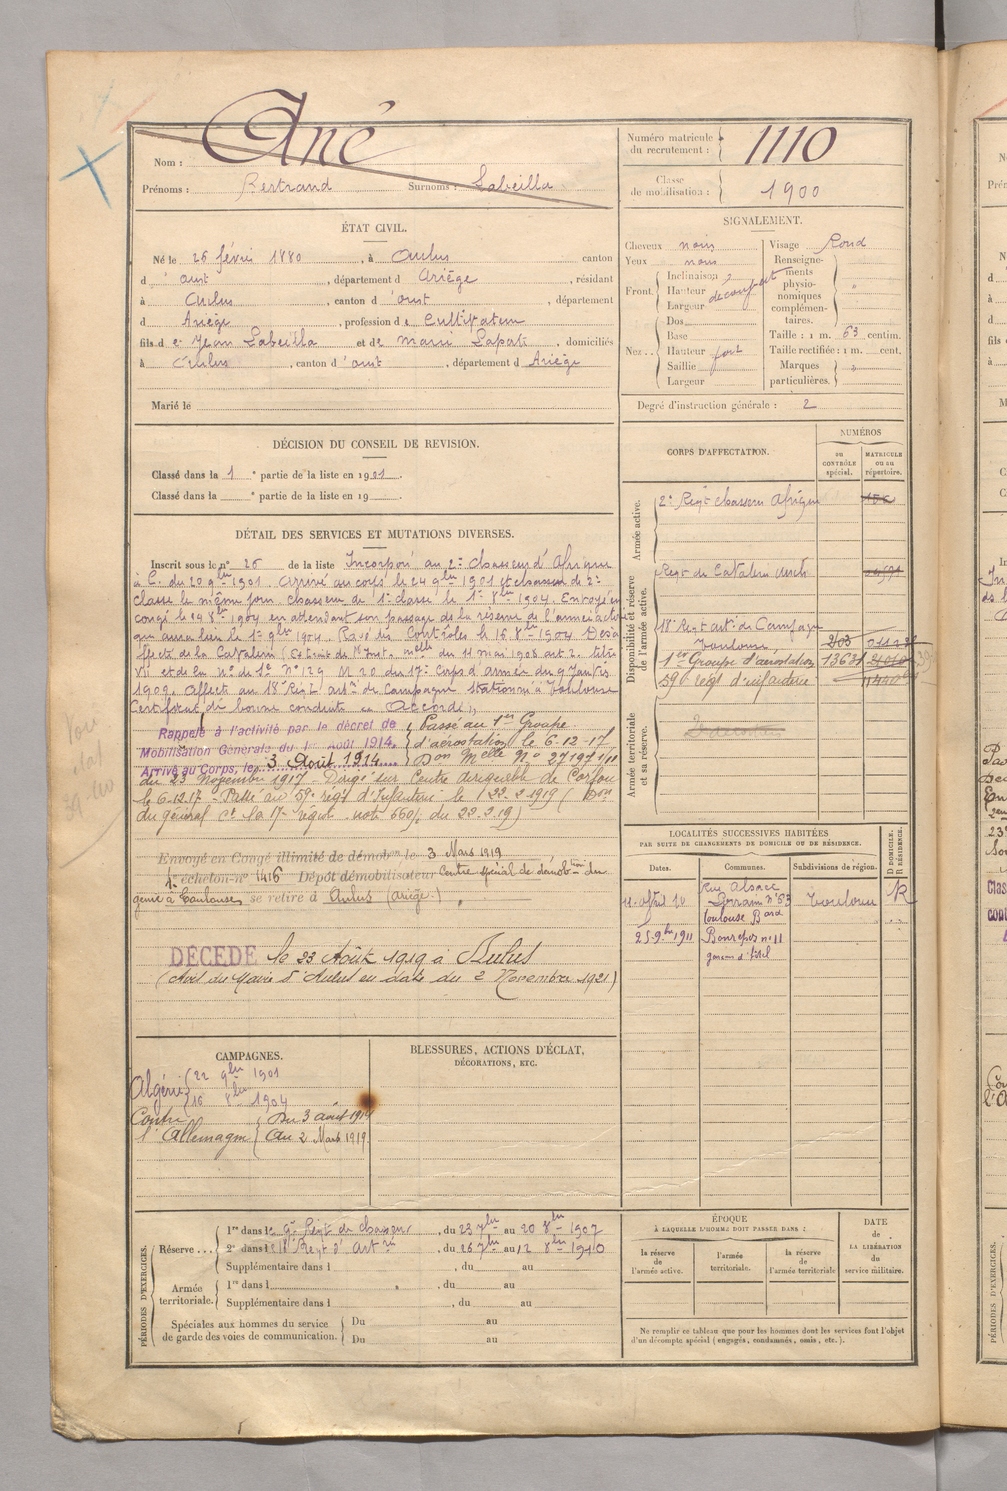 Nom : Ané
Prénoms : Bertrand Surnoms : Labeilla
Numéro matricule du recrutement : 1110
Classe de mobilisation : 1900
ÉTAT CIVIL.
Né le 26 février 1880, à Aulus canton
d'oust, département d Ariège, résidant
à Aulus, canton d'oust, département
d Ariège, profession de Cultivateur
fils de Jean Labeilla et de Marie Laporte, domiciliés
à Aulus, canton d'oust, département d Ariège
Marié le
SIGNALEMENT.
Cheveux noirs
Yeux noirs
Front. Inclinaison
Hauteur découvert
Largeur
Nez.. Dos
Base
Hauteur fort
Saillie
Largeur
Visage Rond
Renseignements physionomiques complémentaires. "
Taille : 1 m. 63 centim.
Taille rectifiée : 1 m. cent.
Marques particulières. "
Degré d'instruction générale : 2
DÉCISION DU CONSEIL DE REVISION.
Classé dans la 1e partie de la liste en 1901.
Classé dans la e partie de la liste en 19
CORPS D'AFFECTATION.
NUMÉROS
au CONTRÔLE spécial.
MATRICULE ou au répertoire.
Armée active.
2e Régt chasseur Afrique
Disponibilité et réserve de l'armée active.
Régt de Cavalerie
18e Régt artie de Campagne
Toulouse 203
1er Groupe d'aérostation 13631
59e régt d'infanterie
Armée territoriale et sa réserve.
DÉTAIL DES SERVICES ET MUTATIONS DIVERSES.
Inscrit sous le n° 26 de la liste Incorporé au 2e chasseur d'Afrique
à C. du 20 9bre 1901. Arrivé au corps le 24 9bre 1901 et chasseur de 2e
classe le même jour. chasseur de 1e classe le 1er 8bre 1904. Envoyé en
congé le 14 8bre 1904 en attendant son passage de la réserve de l'armée active
qui aura lieu le 1er 9bre 1904. Rayé des Contrôles le 16 8bre 1904. Désaffecté
de la Cavalerie (Extrait de l'Inst. melle du 11 mai 1908 art 2. titre
VII et de la n. de Sce N° 129 M 20 du 17e Corps d'armée du 9 Janvier
1909. affecté au 18e Régt artie de Campagne stationné à Toulouse
Certificat de bonne conduite "Accordé"
Rappelé à l'activité par le décret de
Mobilisation Générale du 1er Août 1914.
Arrivé au Corps, le 3 Août 1914
Passé au 1er Groupe
d'aérostation le 6-12-17
Don Melle N° 27197 1/11
du 23 Novembre 1917 - Dirigé sur Centre dirigeable de Corfou
le 6.12.17 - Passé au 59e régt d'Infanterie le 22.2.1919 (Don
du général Ct la 17e région note 660/ du 22.2.19)
Envoyé en Congé illimité de démobon le 3 Mars 1919
1e échelon n° 1416 Dépôt démobilisateur Centre spécial de démobtion du
génie à Toulouse se retire à Aulus (Ariège.)
DÉCÉDÉ le 23 Août 1919 à Aulus
(Avis du Maire d'Aulus en date du 2 Novembre 1921)
LOCALITÉS SUCCESSIVES HABITÉES
PAR SUITE DE CHANGEMENTS DE DOMICILE OU DE RÉSIDENCE.
Dates. Communes. Subdivisions de région. D DOMICILE. R RÉSIDENCE.
Rue Alsace Lorraine n° 63 Toulouse R
25 9bre 1911 Bard Bonrepos n° 11
garçon d'hôtel
CAMPAGNES.
Algérie 22 9bre 1901
16 8bre 1904
Contre l'Allemagne Du 3 août 1914
au 2 Mars 1919
BLESSURES, ACTIONS D'ÉCLAT,
DÉCORATIONS, ETC.
PÉRIODES D'EXERCICES.
Réserve... 1re dans le 9e Régt de chasseur, du 23 7bre au 20 8bre 1907
2e dans le 18e Regt d'artrie, du 26 7bre au 12 8bre 1910
Supplémentaire dans l , du au
Armée territoriale. 1re dans l , du au
Supplémentaire dans l , du au
Spéciales aux hommes du service de garde des voies de communication. Du au
Du au
ÉPOQUE
À LAQUELLE L'HOMME DOIT PASSER DANS :
la réserve de l'armée active.
l'armée territoriale.
la réserve de l'armée territoriale
DATE de LA LIBÉRATION du service militaire.
Ne remplir ce tableau que pour les hommes dont les services font l'objet
d'un décompte spécial (engagés, condamnés, omis, etc.).